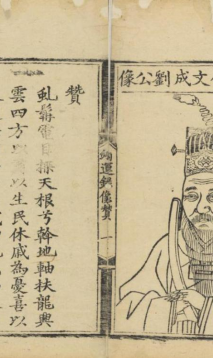 文成劉公像
翊運錄像贊 一
贊
虬髯電目探天根兮斡地軸扶龍興
雲四方以生民休戚為憂喜以